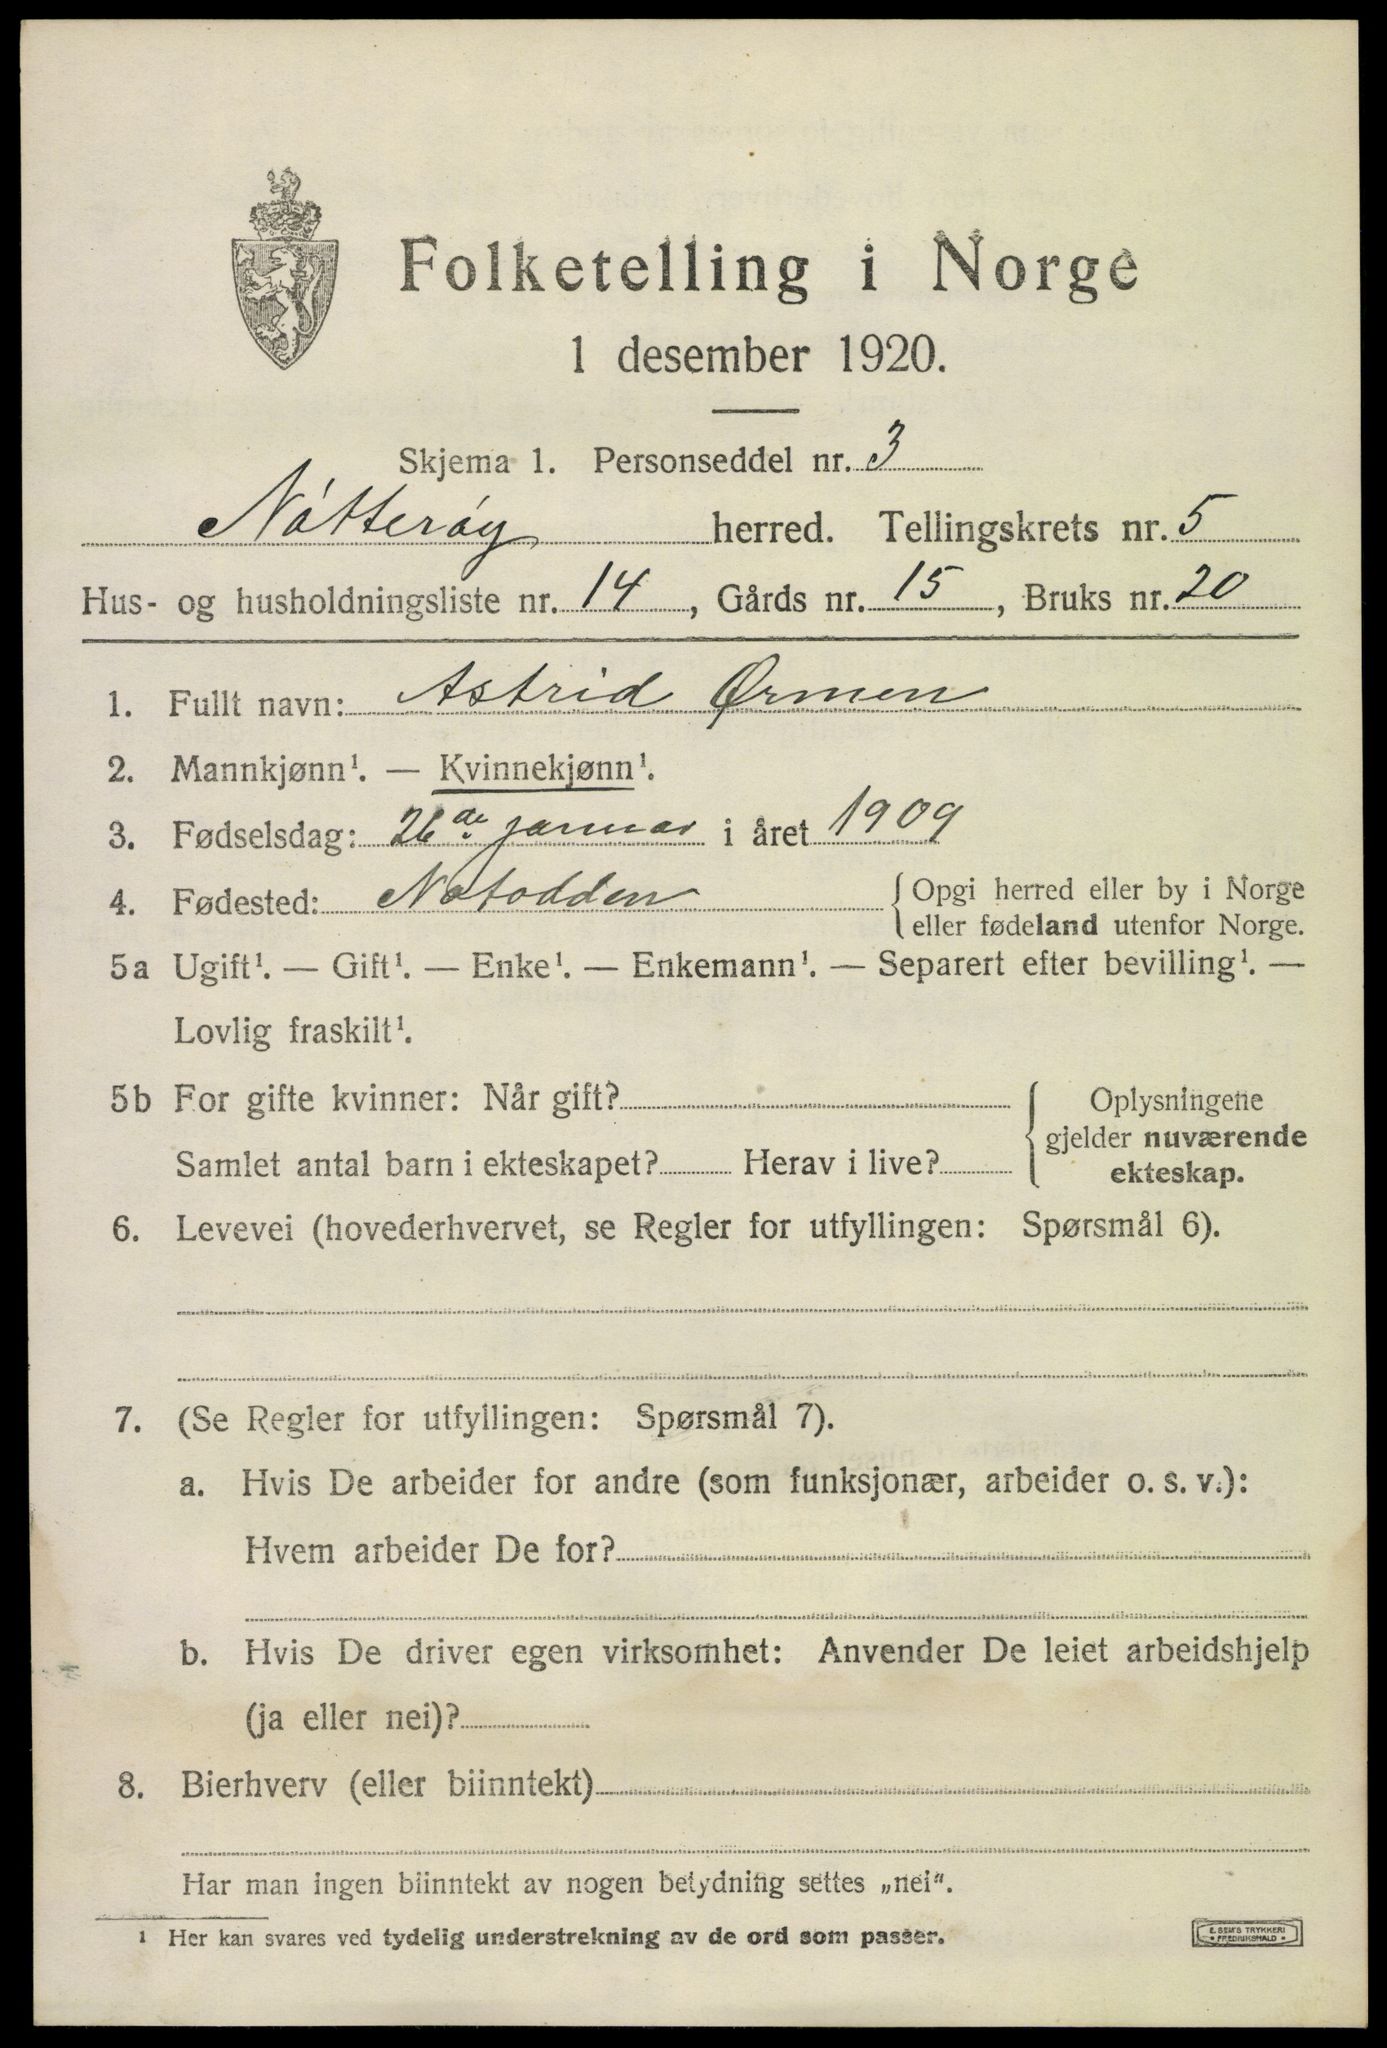 Folketelling i Norge
1 desember 1920.
Skjema 1. Personseddel nr. 3
Nótteróy herred. Tellingskrets nr. 5
Hus- og husholdningsliste nr. 14, Gårds nr. 15, Bruks nr. 20
1. Fullt navn: Astrid Ørmen
2. Mannkjønn¹. — Kvinnekjønn¹.
3. Fødselsdag: 26de januar i året 1909
4. Fødested: Notodden { Opgi herred eller by i Norge
eller fødeland utenfor Norge.
5a Ugift¹. — Gift¹. — Enke¹. — Enkemann¹. — Separert efter bevilling¹. —
Lovlig fraskilt¹.
5b For gifte kvinner: Når gift?
Samlet antal barn i ekteskapet? Herav i live?
{ Oplysningene
gjelder nuværende
ekteskap.
6. Levevei (hovederhvervet, se Regler for utfyllingen: Spørsmål 6).
7. (Se Regler for utfyllingen: Spørsmål 7).
a. Hvis De arbeider for andre (som funksjonær, arbeider o. s. v.):
Hvem arbeider De for?
b. Hvis De driver egen virksomhet: Anvender De leiet arbeidshjelp
(ja eller nei)?
8. Bierhverv (eller biinntekt)
Har man ingen biinntekt av nogen betydning settes „nei".
¹ Her kan svares ved tydelig understrekning av de ord som passer.
E. SEM'S TRYKKERI
FREDRIKSHALD